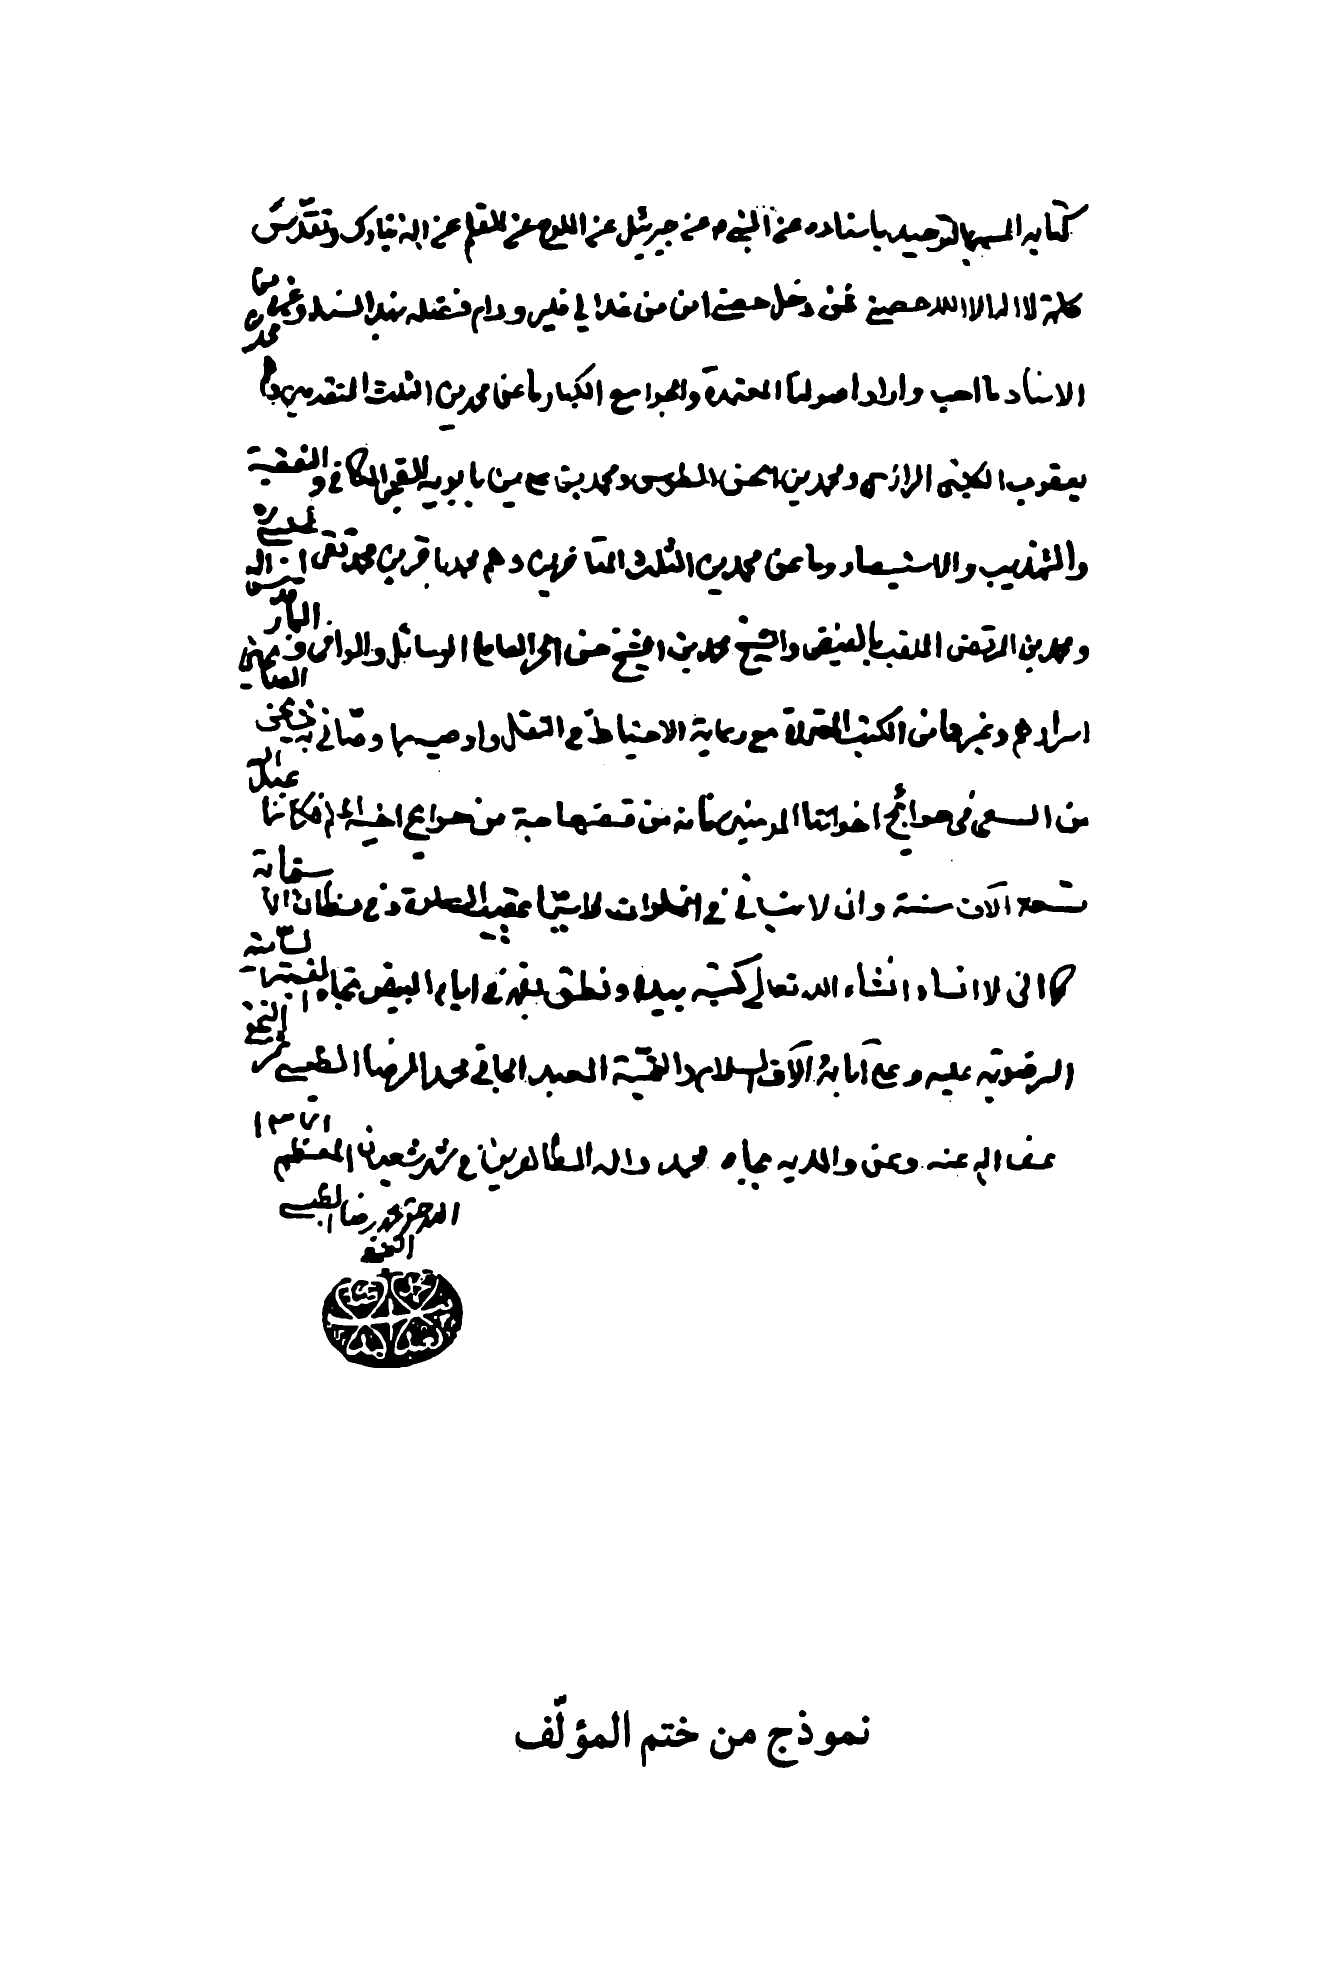 كتابه المسمى بالتوحيد باسناده عن النبي ص عن جبرئيل عن اللوح عن القلم عن الله تبارك وتقدس
كلمة لا اله الا الله حصني فمن دخل حصني امن من عذابي فليرو دام فضله بهذا السند وغيره من
الاسناد ما احب واراد اصولنا المعتمدة والجوامع الكبار ما عن محمدين الثلث المتقدمين وهم محمد بن
يعقوب الكليني الرازي ومحمد بن الحسن الطوسي ومحمد بن علي بن بابويه القمي الكافي والفقيه
والتهذيب والاستبصار وما عن محمدين الثلث المتاخرين وهم محمد باقر بن محمد تقي المجلسي ره
ومحمد بن المرتضى الملقب بالفيض والشيخ محمد بن الشيخ حسن الحر العاملي الوسائل والوافي
اسرارهم وغيرها من الكتب المعتبرة مع رعاية الاحتياط في النقل واوصيه بما وصاني به
من السعي في حوائج اخواننا المؤمنين فانه من قضى حاجة من حوائج اخيه المؤمن فكانما عبد الله
تسعة آلاف سنة وان لا ينساني في الخلوات لا سيما عقيب الصلوة وفي مظان الاستجابة
كما اني لا انساه انشاء الله تعالى كتبته بيده ونطق بفمه في ايام البيض تجاه القبة السامية
الرضوية عليه وعلى آبائه آلاف السلام والتحية العبد الجاني محمد الرضا الطبسي النجفي
عفى الله عنه وعن والديه بجاه محمد واله الطاهرين في شهر شعبان المعظم ١٣٧١
محمد رضا الطبسي
النجفي
نموذج من ختم المؤلّف